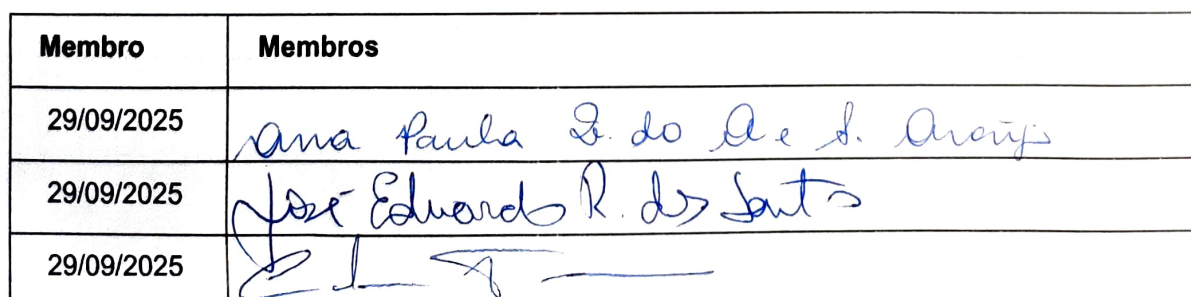 Membro Membros
29/09/2025 Ana Paula do A e S. Araújo
29/09/2025 José Eduardo R. dos Santos
29/09/2025